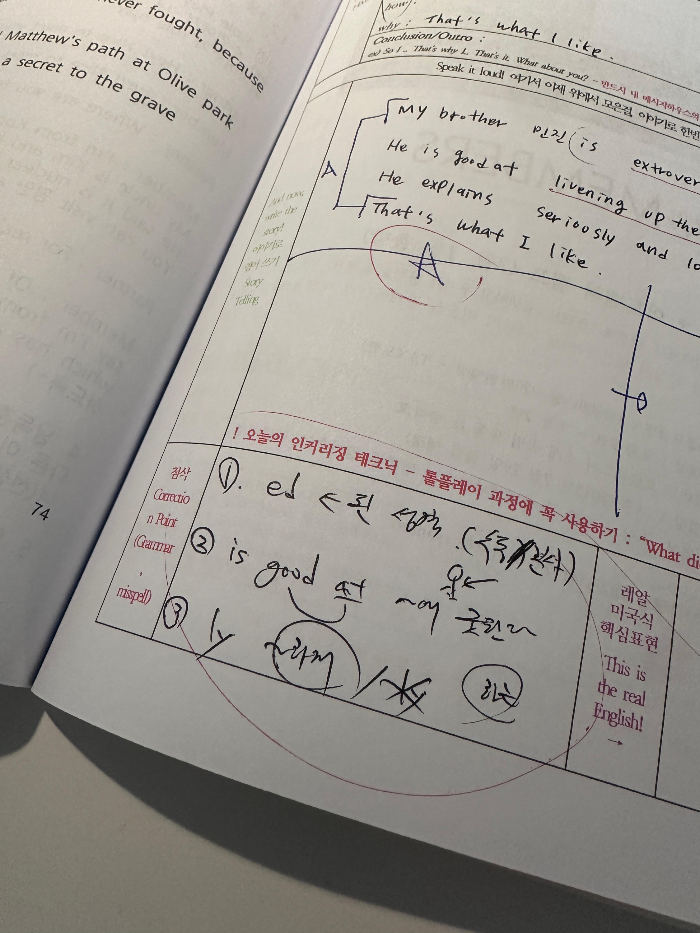 never fought, because
Matthew's path at Olive park
a secret to the grave
74
how:
why : That's what I like.
Conclusion/Outro :
ex) So I .. That's why I.. That's it. What about you? - 반드시 내 메시지하우스의
Speak it loud! 여기서 이제 위에서 모은걸, 이야기로 한번
And now, write the story! 이야기로
Story Telling
A
My brother 민진 is extrover
He is good at livening up the
He explains seriously and lo
That's what I like.
A
! 오늘의 인커리징 테크닉 - 롤플레이 과정에 꼭 사용하기 : "What di
첨삭
Correctio
n Point
(Grammar
,
misspell)
①. ed ← 된
② is good at ~에
③ ly ~하게 / 하는
레알
미국식
핵심표현
This is
the real
English!
→